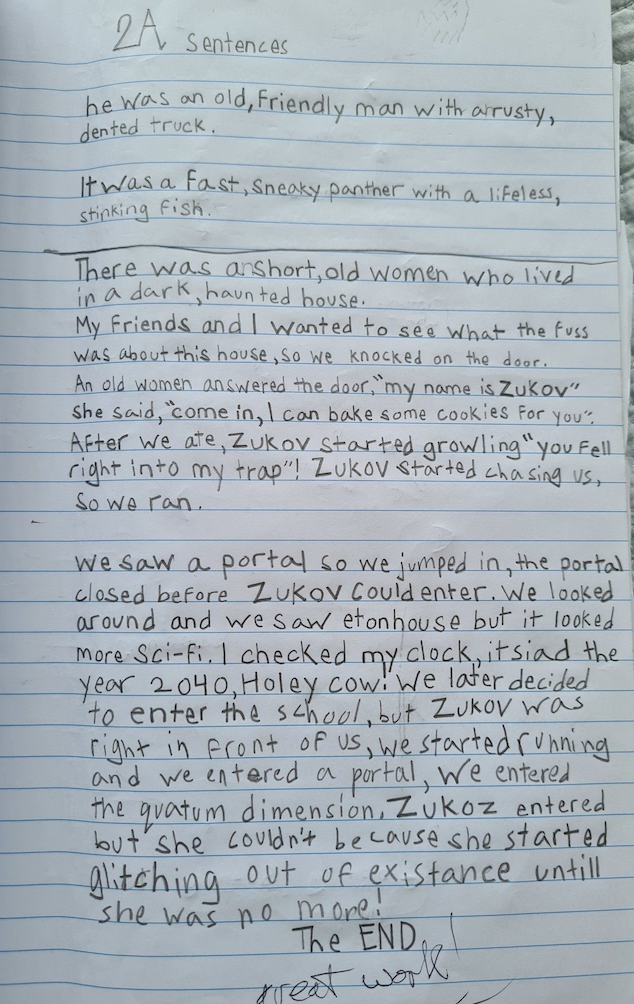 2A Sentences
he was an old, friendly man with a rusty,
dented truck.
It was a fast, sneaky panther with a lifeless,
stinking fish.
There was a short, old women who lived
in a dark, haunted house.
My friends and I wanted to see what the fuss
was about this house, so we knocked on the door.
An old women answered the door, "my name is ZUKOV"
she said, "come in, I can bake some cookies for you".
After we ate, ZUKOV started growling "you fell
right into my trap"! ZUKOV started chasing us,
so we ran.
we saw a portal so we jumped in, the portal
closed before ZUKOV could enter. We looked
around and we saw etonhouse but it looked
more Sci-fi. I checked my clock, it siad the
year 2040, Holey cow! We later decided
to enter the school, but ZUKOV was
right in front of us, we started running
and we entered a portal, We entered
the quatum dimension, ZUKOZ entered
but she couldn't because she started
glitching out of existance untill
she was no more!
The END
great work!